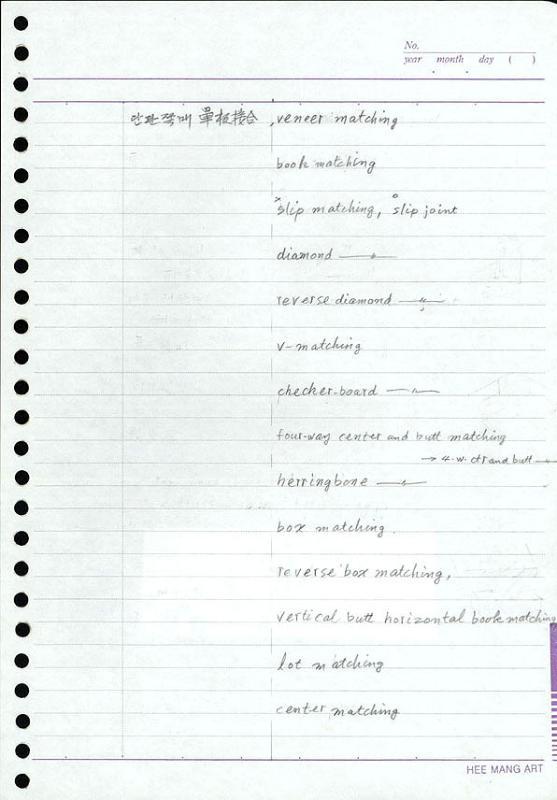 No.
year month day ( )
單板接合, veneer matching
book matching
slip matching, slip joint
diamond —"—
reverse diamond —"—
v-matching
checker-board —"—
four-way center and butt matching
→ 4.w. ctr and butt —
herringbone —"—
box matching.
reverse box matching,
vertical butt horizontal book matching
lot matching
center matching
HEE MANG ART